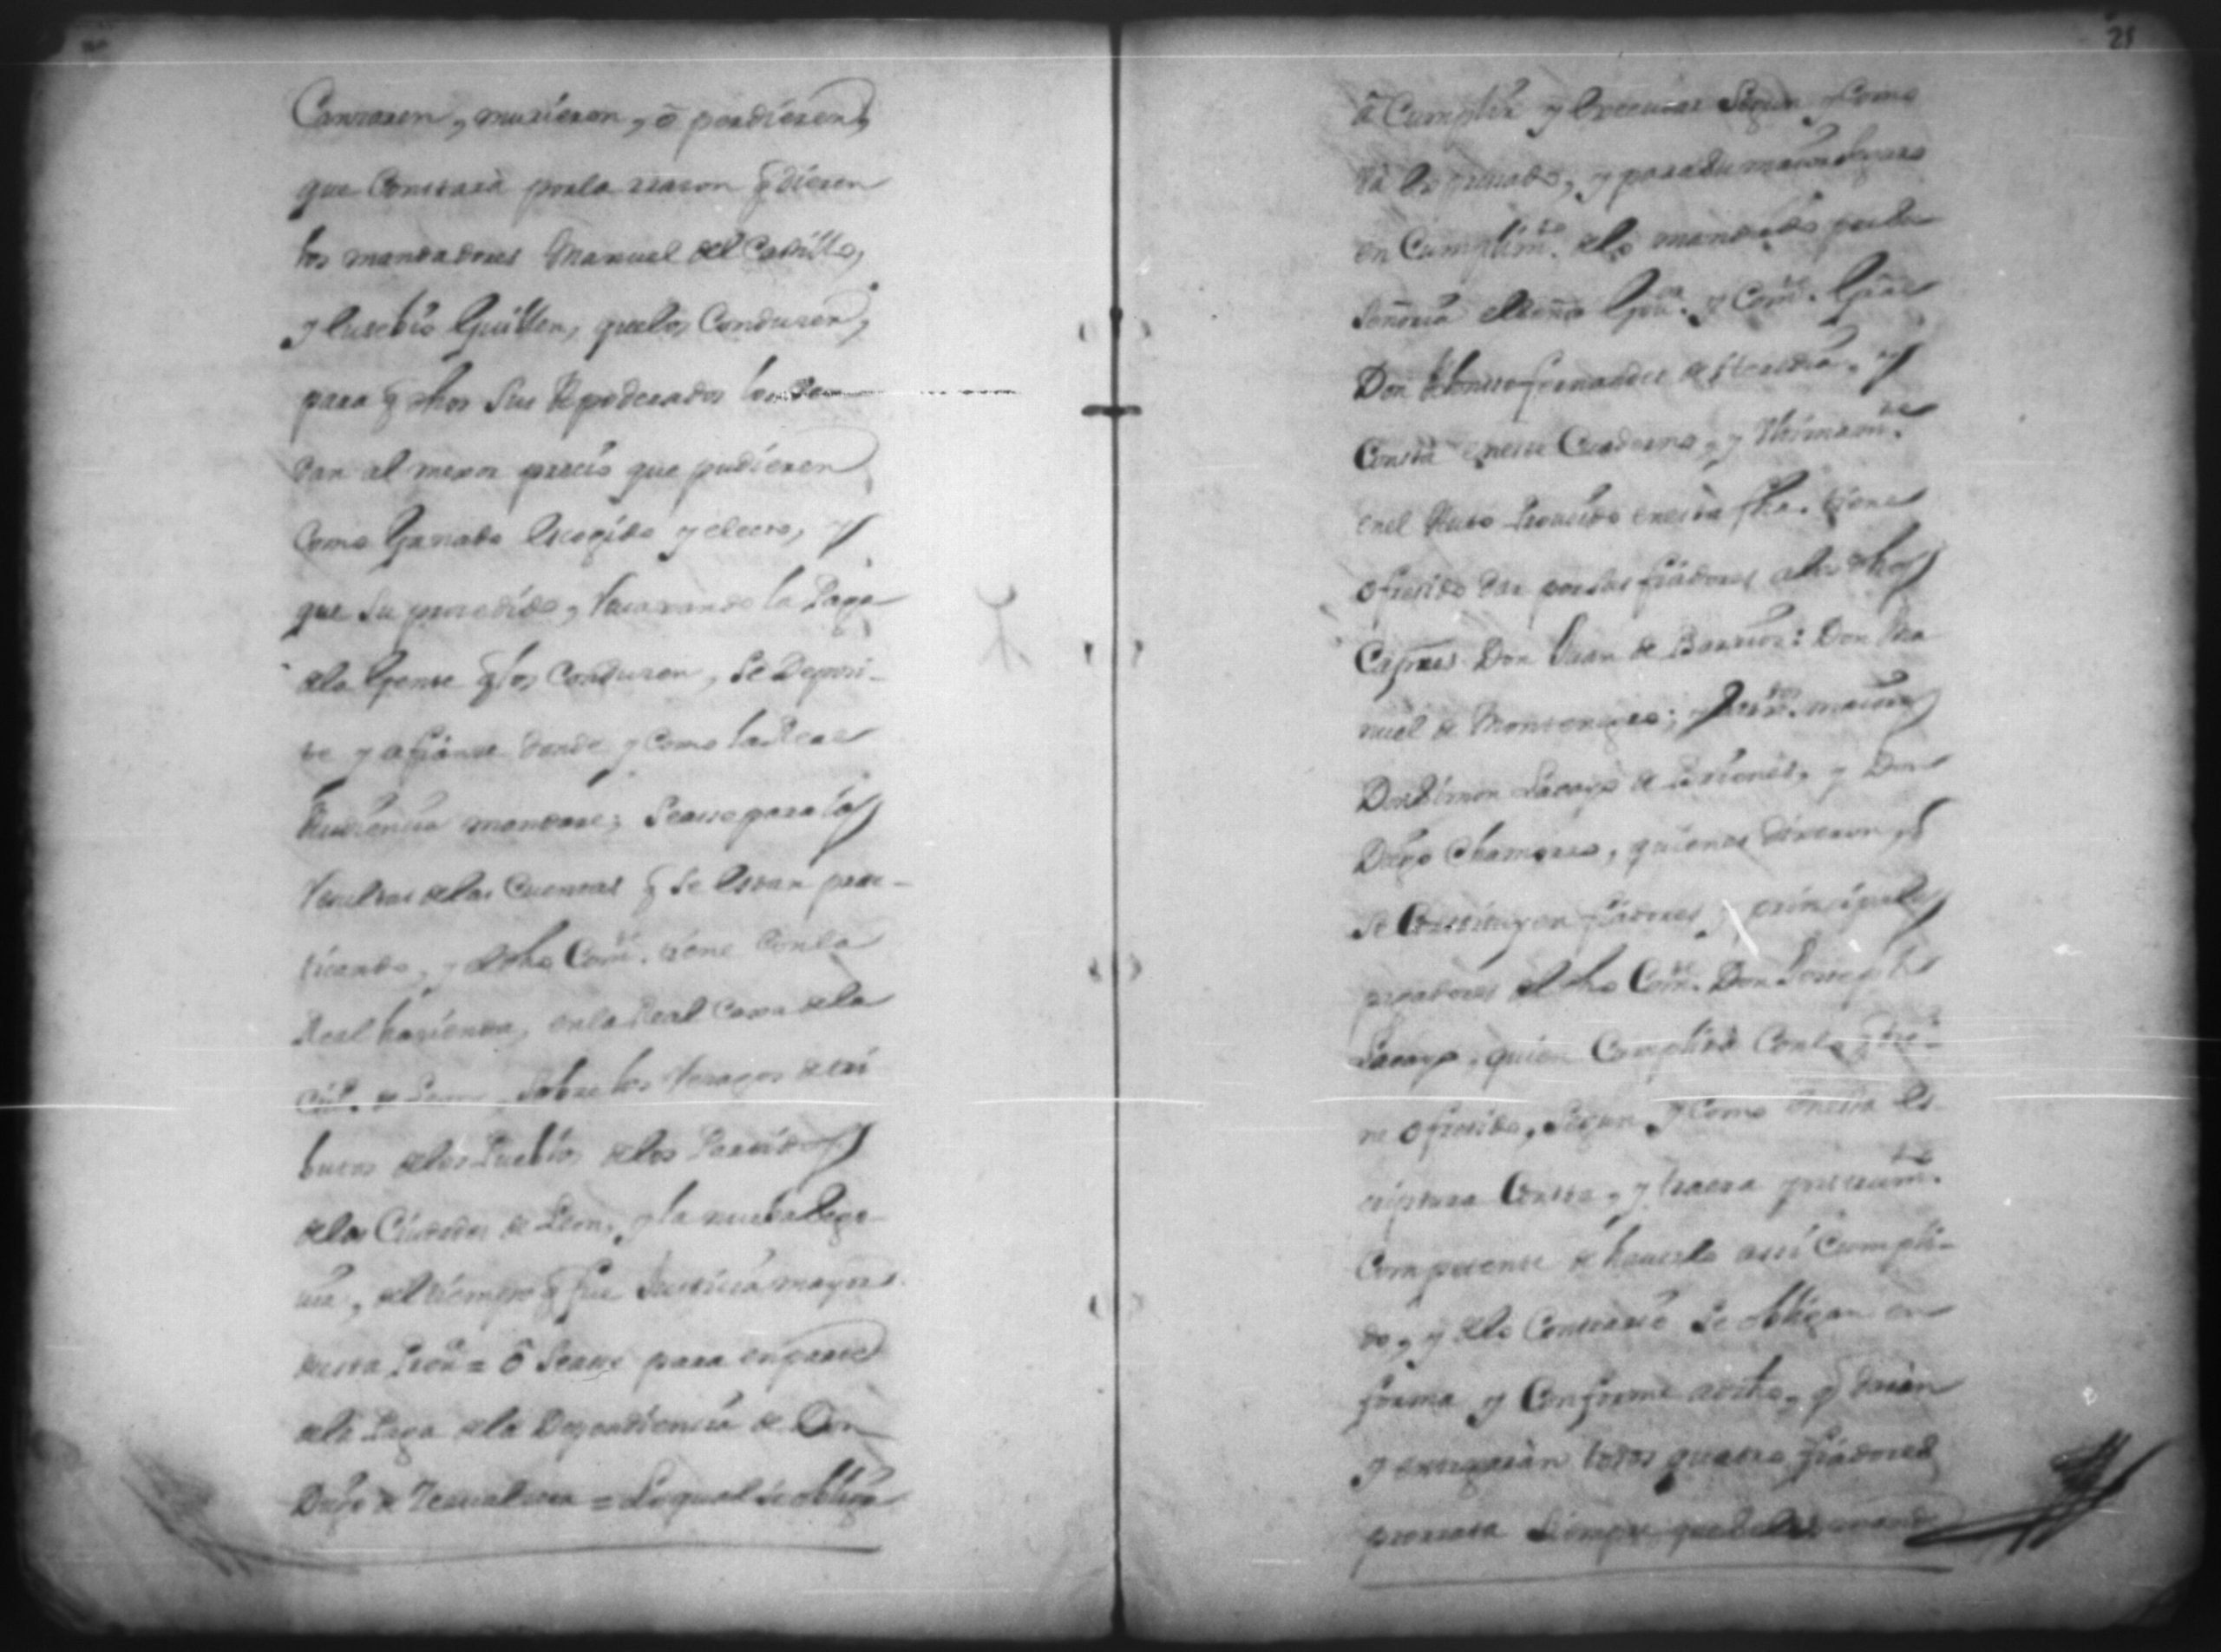 21
Cansaren, murieron, ô perdieren,
que Constarà porla razon q̃ dieren
los mandadores Manuel del Castillo,
y Eusebio Guillen, quelos Conducen,
para q̃ dhos sus Apoderados los
dan al mexor precio que pudieren
Como Ganado Escogido y electo, y
que su procedido, sacando la Paga
dela Gente q̃ los Conducen, se Deposi-
te y afiance donde y Como la Real
Audiencia mandare; sease para las
resultas delas Cuentas q̃ se estan prac-
ticando, y el dho Comte. tiene Conla
Real hazienda, enla Real Caxa dela
Ciud. de Leon, sobre los rezagos de tri
butos delos Pueblos delos Partidos
delas Ciudades de Leon, y la nueba Sego-
uia, del tiempo q̃ fue Justicia mayor
desta Prou.ª = ô sease para en parte
dela Paga dela Dependiencia de Don
Diego de = Loqual se obliga
â Cumplir y Executar Segun y Como
va Expresado, y para su maior
en Cumplimto. delo mandado por su
Señoria el Señor Gour. y Comte. Gral
Don Alonso fernandez de Heredia, y
Consta eneste Cuaderno, y Vltimamte.
enel Auto Proueido enesta fha. tiene
ofresido dar por sus fiadores alos dhos
Capnes. Don Juan de Barrios: Don Ma
nuel de Montenegro; y Sartos. maiores
Don Simon Lacayo de Briones, y Don
Diego Chamorro, quienes dixeron q̃
se Constituyen fiadores y principales
pagadores del dho Comte. Don Joseph
Lacayo, quien Complirà Conlo q̃ tie-
ne ofresido, Segun y Como enesta Es
criptura Consta, y traera ynstrumto.
Competente de hauerlo assi Cumpli-
do, y delo Contrario se obligan en
forma y Conforme a dro. q̃ daràn
y entregaràn todos quatro fiadores
prorrata siempre que seles mande